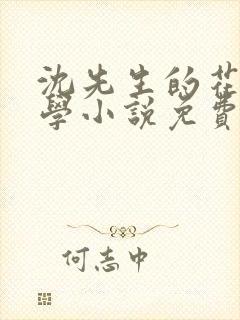 沈先生的花
學小說免費
何志中